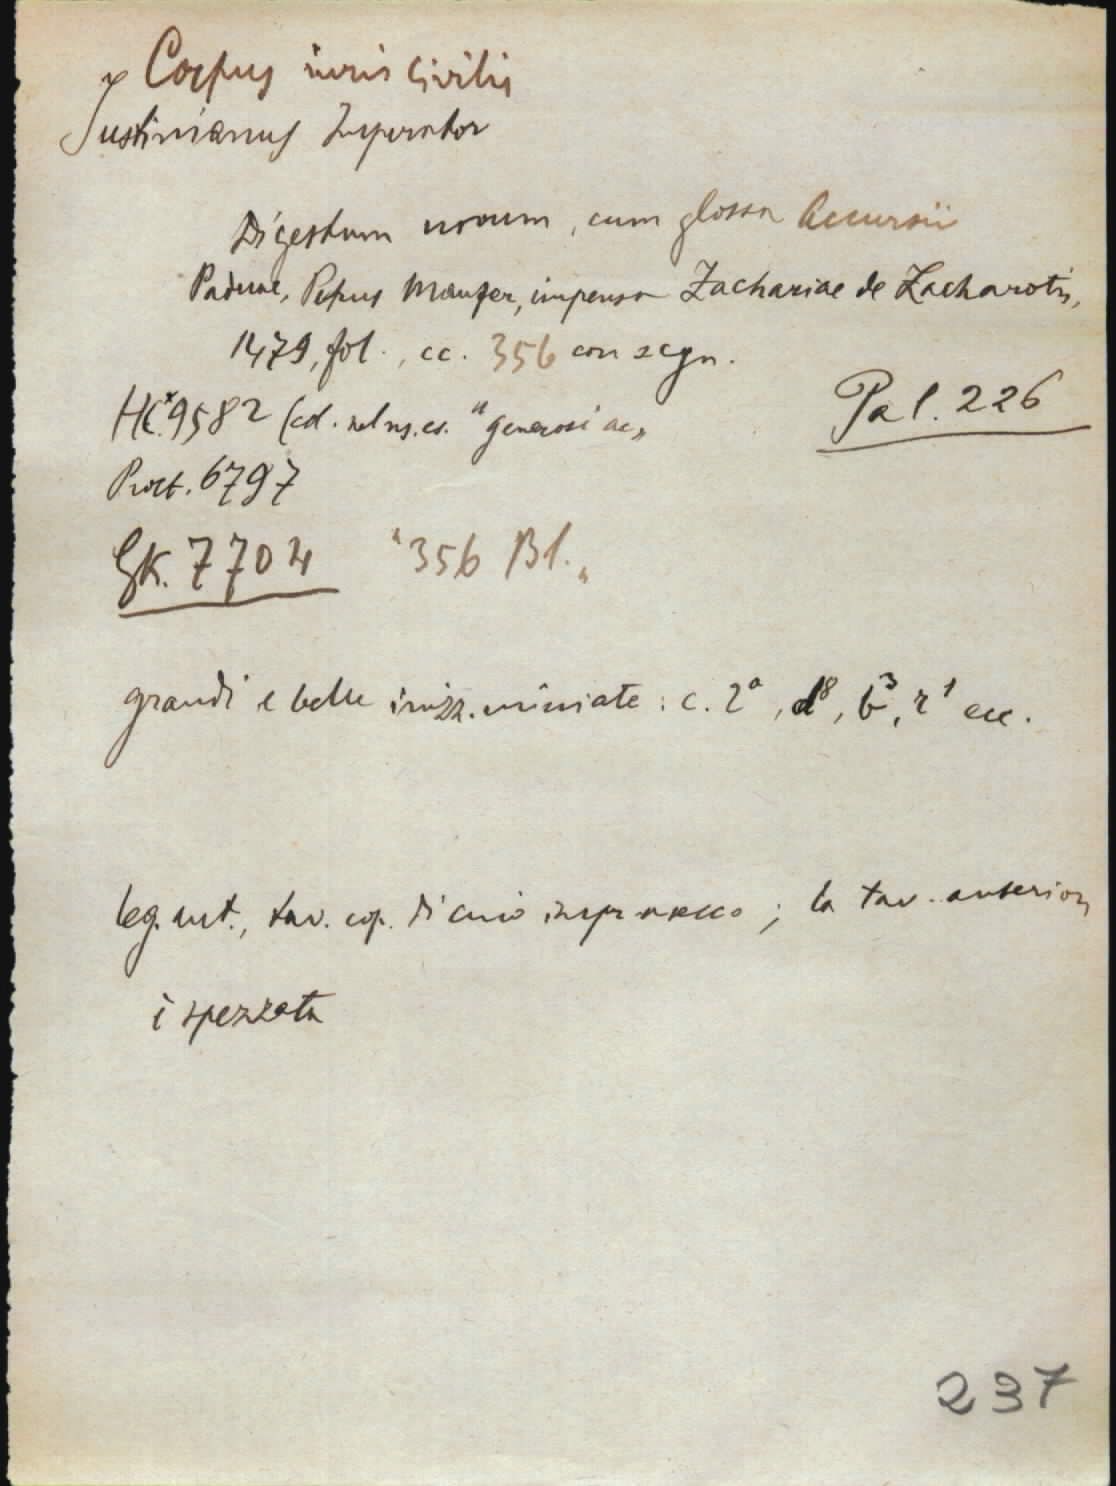 Corpus iuris civilis
Justinianus Imperator
Digestum novum, cum glossa Accursii
Paduae, Petrus Maufer, impensa Zachariae de Zacharotis,
1479, fol., cc. 356 con segn.
HC*9582 (col. nel "generosi ac"
Pal. 226
Proct. 6797
GK. 7704 "356 Bl."
grandi e belle inizz. miniate: c. 2ª, d8, b3, r1 ecc.
leg. ant., tav. cop. di cuoio impresso; la tav. anteriore
è spezzata
237